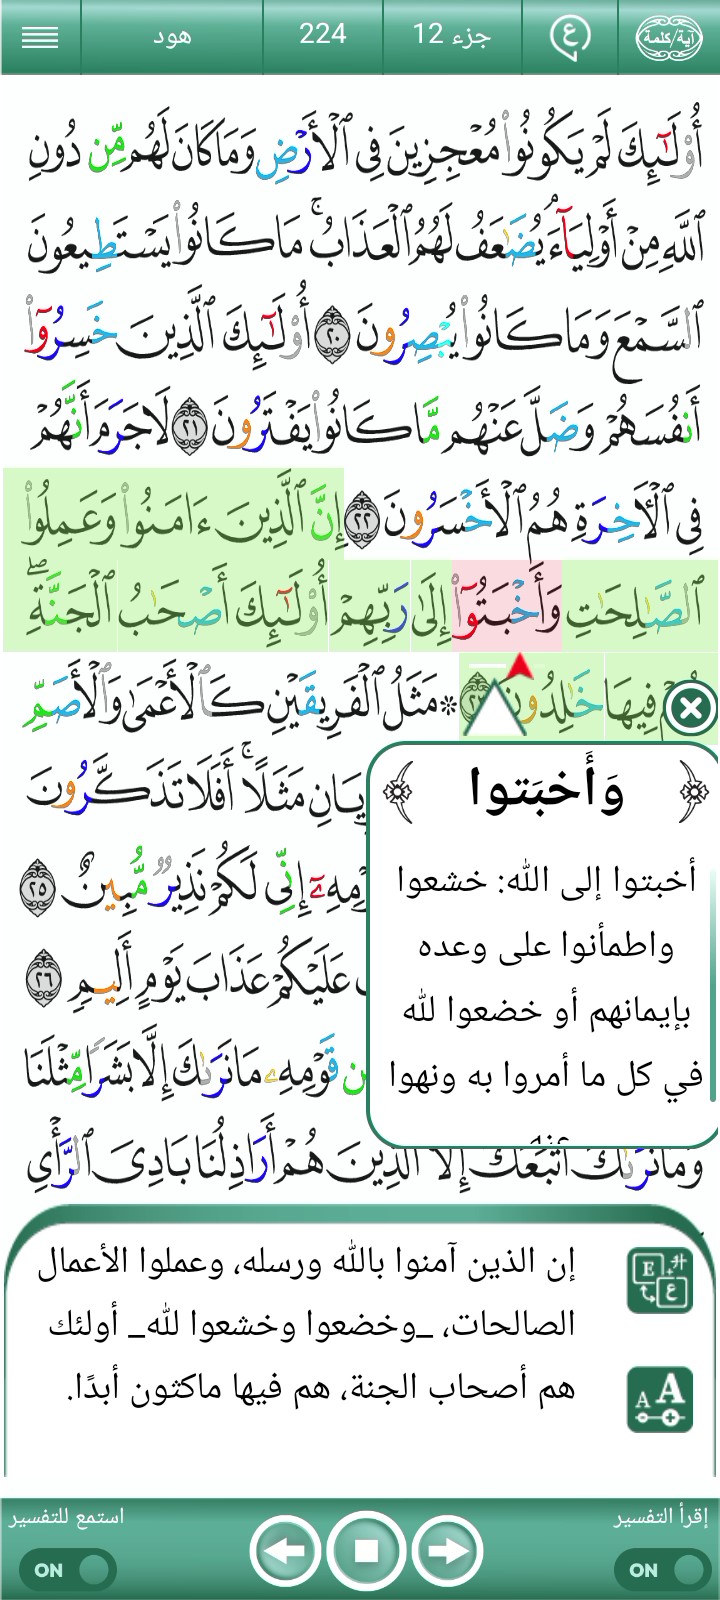 آية/كلمة
ع
جزء 12
224
هود
أُوْلَـٰٓئِكَ لَمْ يَكُونُوا۟ مُعْجِزِينَ فِى ٱلْأَرْضِ وَمَا كَانَ لَهُم مِّن دُونِ
ٱللَّهِ مِنْ أَوْلِيَآءَ ۘ يُضَـٰعَفُ لَهُمُ ٱلْعَذَابُ ۚ مَا كَانُوا۟ يَسْتَطِيعُونَ
ٱلسَّمْعَ وَمَا كَانُوا۟ يُبْصِرُونَ ٢٠ أُوْلَـٰٓئِكَ ٱلَّذِينَ خَسِرُوٓا۟
أَنفُسَهُمْ وَضَلَّ عَنْهُم مَّا كَانُوا۟ يَفْتَرُونَ ٢١ لَا جَرَمَ أَنَّهُمْ
فِى ٱلْـَٔاخِرَةِ هُمُ ٱلْأَخْسَرُونَ ٢٢ إِنَّ ٱلَّذِينَ ءَامَنُوا۟ وَعَمِلُوا۟
ٱلصَّـٰلِحَـٰتِ وَأَخْبَتُوٓا۟ إِلَىٰ رَبِّهِمْ أُوْلَـٰٓئِكَ أَصْحَـٰبُ ٱلْجَنَّةِ ۖ
فِيهَا خَـٰلِدُونَ ۞ مَثَلُ ٱلْفَرِيقَيْنِ كَٱلْأَعْمَىٰ وَٱلْأَصَمِّ
مَثَلًا ۚ أَفَلَا تَذَكَّرُونَ
إِنِّى لَكُمْ نَذِيرٌ مُّبِينٌ ٢٥
عَلَيْكُمْ عَذَابَ يَوْمٍ أَلِيمٍ ٢٦
قَوْمِهِۦ مَا نَرَىٰكَ إِلَّا بَشَرًا مِّثْلَنَا
وَمَا نَرَىٰكَ ٱتَّبَعَكَ إِلَّا ٱلَّذِينَ هُمْ أَرَاذِلُنَا بَادِىَ ٱلرَّأْىِ
وَأَخبَتوا
أخبتوا إلى الله: خشعوا
واطمأنوا على وعده
بإيمانهم أو خضعوا لله
في كل ما أمروا به ونهوا
إن الذين آمنوا بالله ورسله، وعملوا الأعمال
الصالحات، _وخضعوا وخشعوا لله_ أولئك
هم أصحاب الجنة، هم فيها ماكثون أبدًا.
إقرأ التفسير
استمع للتفسير
ON
ON